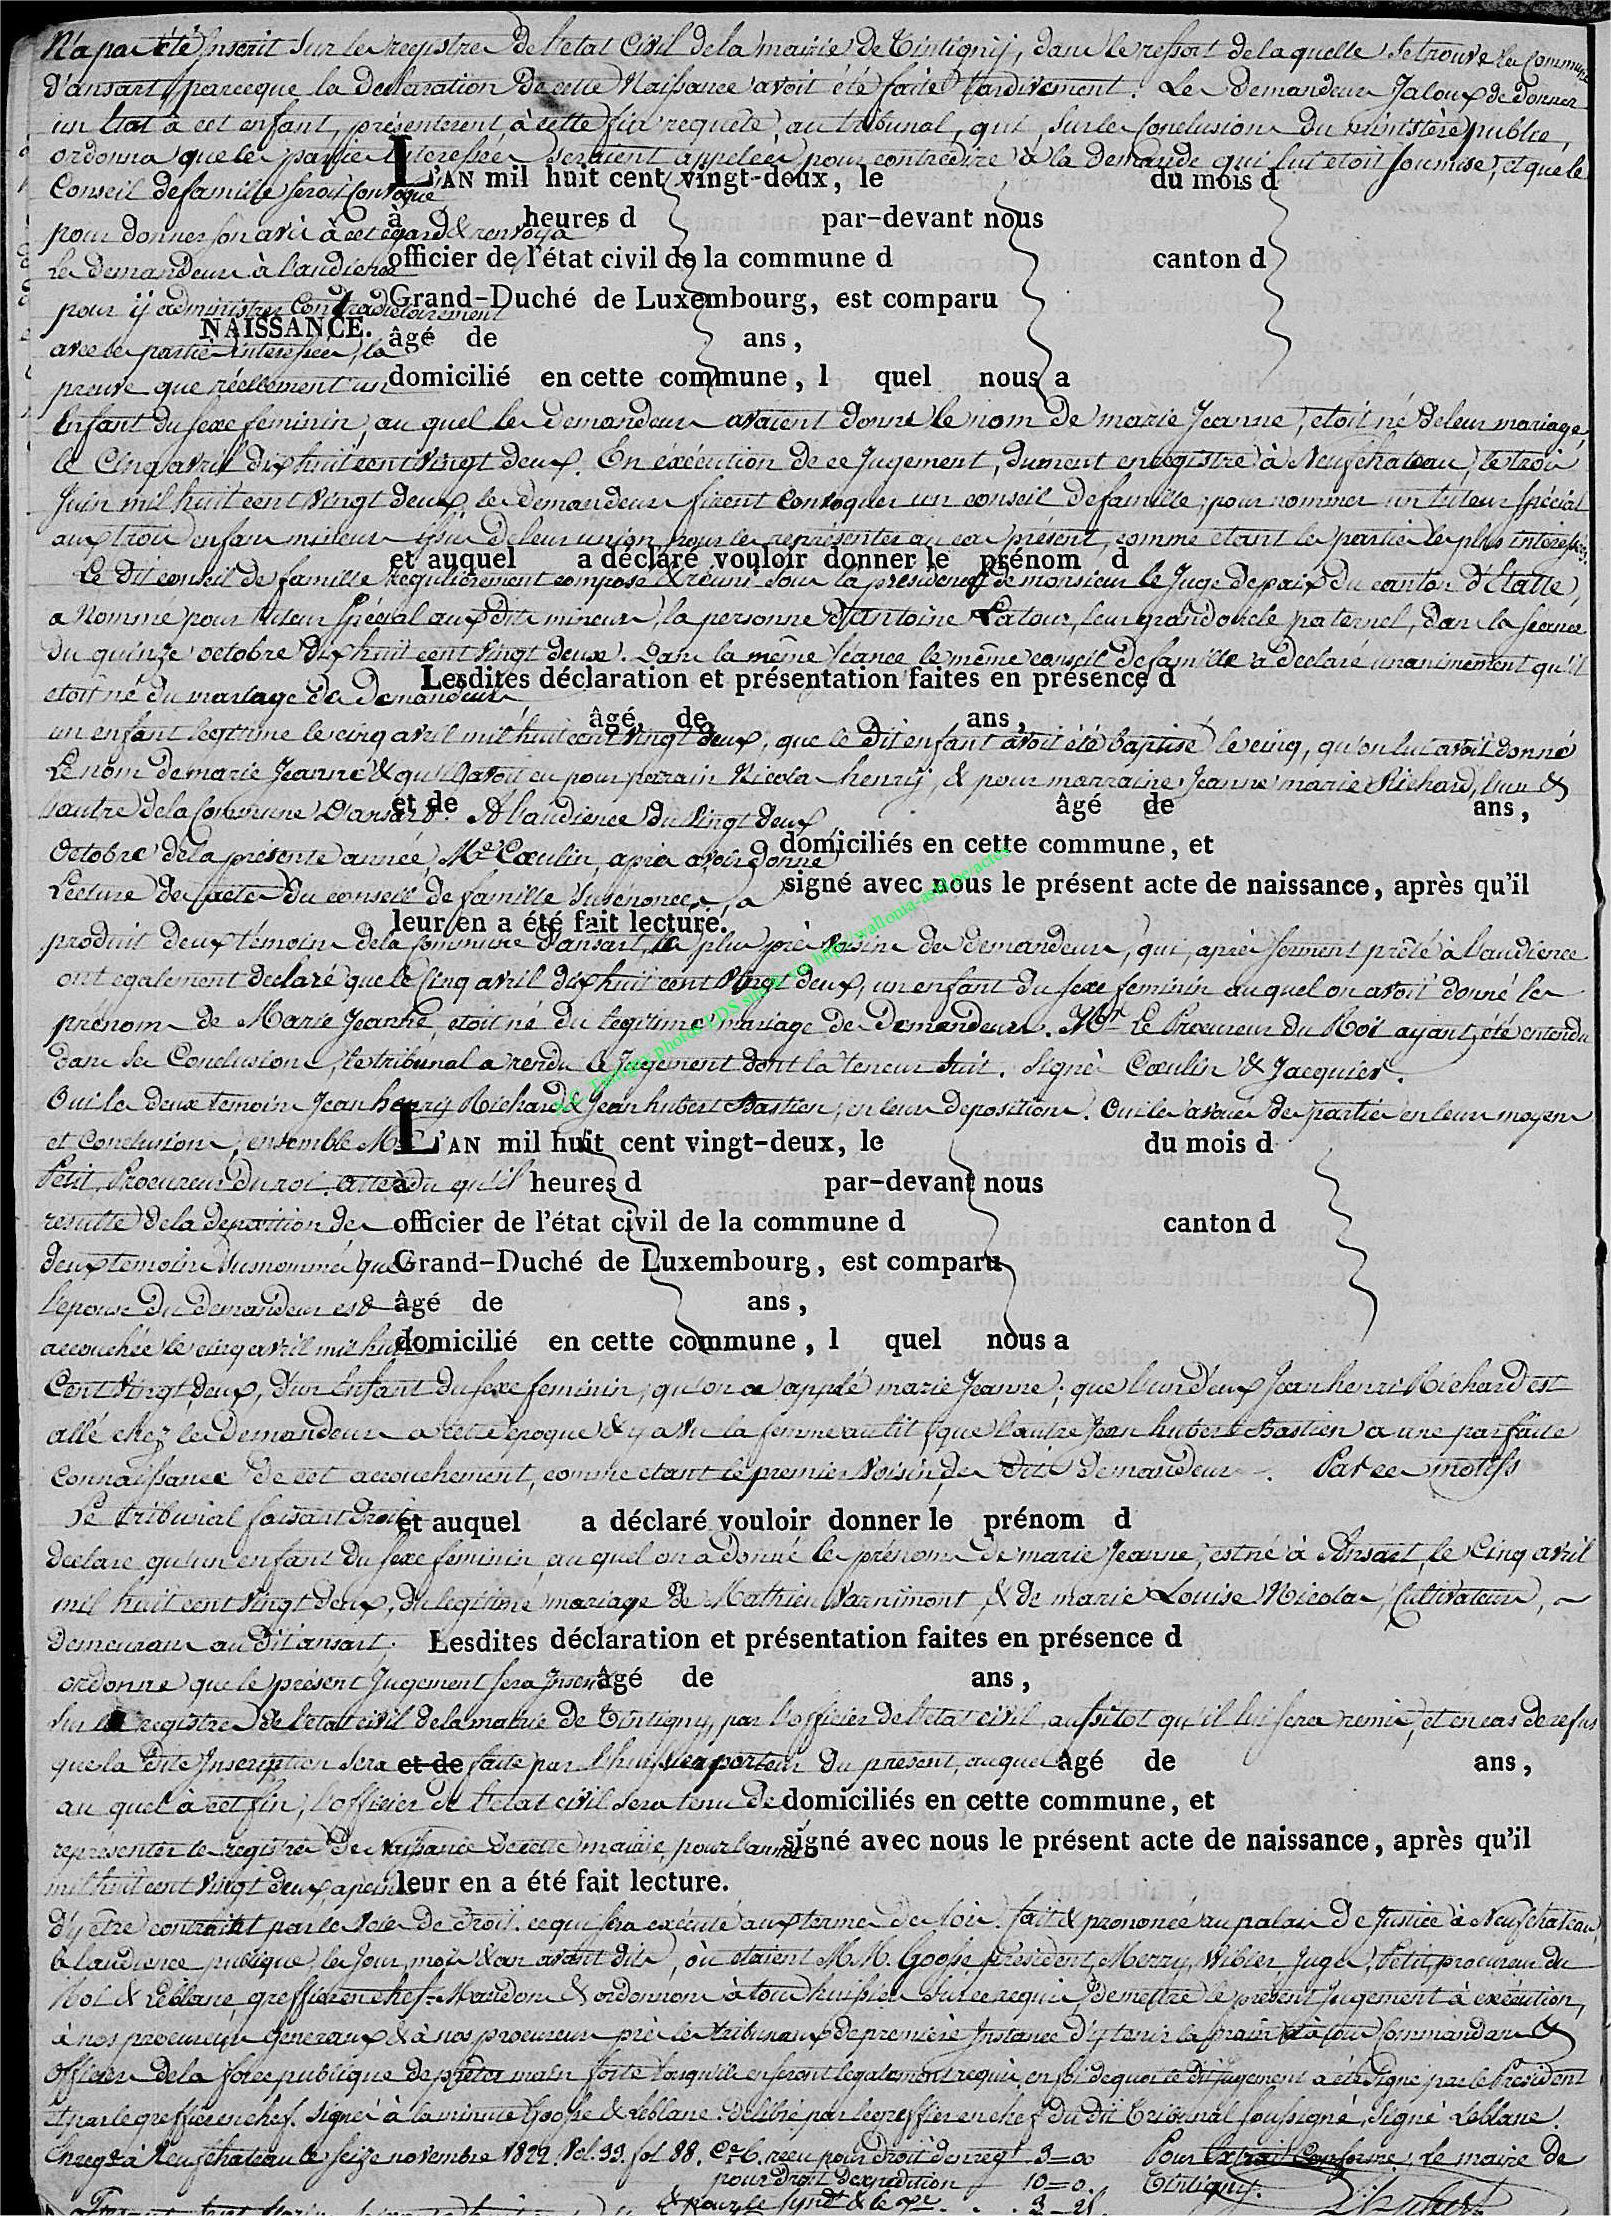 N'a pas été Inscrit sur les registres de l'etat Civil de la mairie de Tintigny, dans le ressort de laquelle se trouve la Commune
d'ansart, parceque la declaration de cette Naissance avoit été faite tardivement. Les demandeurs Jaloux de donner
un Etat à cet enfant, présenterent à cette fin requete, au tribunal, qui, sur les Conclusions du ministère public,
ordonna que les parties interessées seraient appelées pour contredire à la demande qui lui etoit soumise, et que le
L'AN mil huit cent vingt-deux, le du mois d
Conseil de famille seroit Convoqué
à heures d par-devant nous
pour donner son avis à cet egard & renvoya
officier de l'état civil de la commune d canton d
Les demandeurs à l'audience
Grand-Duché de Luxembourg, est comparu
pour ij administrer Contradictoirement
NAISSANCE.
âgé de ans,
avec les parties interessées, la
domicilié en cette commune, l quel nous a
preuve que réellement un
Enfant du sexe feminin, au quel les demandeurs avaient donné le nom de marie Jeanne, etoit né de leur mariage,
le Cinq avril dix huit cent vingt deux. En éxécution de ce Jugement, dument enregistré à Neufchateau, le trois
Juin mil huit cent vingt deux, les demandeurs firent Convoquer un conseil de famille, pour nommer un tuteur spécial
aux trois enfans mineurs issus de leur union, pour les représenter au cas présent, comme etant les parties les plus interessées.
et auquel a déclaré vouloir donner le prénom d
Le dit conseil de famille regulièrement composé & réuni sous la présidence de monsieur le Juge de paix du canton d'Etalle,
a Nommé pour tuteur spécial aux dits mineurs, la personne d'Antoine Latour, leur grand oncle paternel, dans la séance
du quinze octobre dix huit cent vingt deux. Dans la même séance le même conseil de famille a declaré unanimement qu'il
Lesdites déclaration et présentation faites en présence d
etoit né du mariage des demandeurs
âgé, de ans,
un enfant legitime le cinq avril mil huit cent vingt deux, que le dit enfant avoit été baptisé le cinq, qu'on lui avoit donné
Le nom de marie Jeanne & qu'il avoit eu pour parain Nicolas henry, & pour marraine Jeanne marie Richard, l'un &
et de âgé de ans,
l'autre de la Commune d'ansart. A l'audience du vingt deux
domiciliés en cette commune, et
Octobre de la présente année, Me Cœulin, après avoir donné
signé avec nous le présent acte de naissance, après qu'il
Lecture de l'acte du conseil de famille susénoncé, a
leur en a été fait lecture.
produit deux témoins de la Commune d'ansart, les plus près voisins des demandeurs, qui, après serment prêté à l'audience
ont egalement declaré que le cinq avril dix huit cent vingt deux, un enfant du sexe feminin au quel on avoit donné les
prénoms de Marie Jeanne, etoit né du legitime mariage des Demandeurs. Mr Le Procureur du Roi ayant été entendu
dans ses Conclusions, le tribunal a rendu le Jugement dont la teneur suit. Signé Cœulin & Jacquier.
Oui les deux temoins Jean henry Richard & Jean hubert Bastien, en leurs depositions. Oui les avoués des parties en leurs moyens
L'AN mil huit cent vingt-deux, le du mois d
et Conclusions, ensemble Mr
à heures d par-devant nous
Petit, Procureur du roi. attendu qu'il
officier de l'état civil de la commune d canton d
resulte de la deposition des
Grand-Duché de Luxembourg, est comparu
deux temoins susnommés que
âgé de ans,
l'epouse du demandeur est
domicilié en cette commune, l quel nous a
accouchée le cinq avril mil huit
Cent vingt deux, d'un Enfant du sexe feminin, qu'on a applé marie Jeanne, que l'un d'eux Jean henri Richard est
allé chez les Demandeurs a cette epoque & y a vu la femme au lit, que l'autre Jean hubert Bastien a une parfaite
Connaissance de cet accouchement, comme etant le premier voisin des dits demandeurs. Par ces motifs
et auquel a déclaré vouloir donner le prénom d
Le tribunal faisant droit
declare qu'un enfant du sexe feminin, au quel on a donné les prénoms de marie Jeanne, est né à Ansart, le Cinq avril
mil huit cent vingt deux, du legitime mariage de Mathieu Warnimont, & de marie Louise Nicolas, Cultivateurs,
demeurans au dit ansart. Lesdites déclaration et présentation faites en présence d
âgé de ans,
ordonne que le présent Jugement sera Inseré
sur les registres de l'etat civil de la mairie de Tintigny, par l'officier de l'etat civil, aussitot qu'il lui sera remis, et en cas de refus
que la dite Inscription sera et de faite par l'huissier porteur du present, auquel âgé de ans,
au quel à cet fin, l'officier de l'etat civil sera tenu de domiciliés en cette commune, et
representer le registre de Naissance de cette mairie, pour l'année signé avec nous le présent acte de naissance, après qu'il
mil huit cent vingt deux, a peine leur en a été fait lecture.
d'y être contraint par les voies de droit. ce qui sera exécuté aux termes des lois. fait & prononcé au palais de Justice à Neufchateau,
à l'audience publique, les Jour, mois & an avant dits, où etaient M.M. Goosse, président, Merzy, Wibier Juges, Petit, procureur du
Roi & Leblanc greffier en chef. Mandons & ordonnons à tous huissiers sur ce requis de mettre le présent Jugement à exécution,
à nos procureurs generaux & à nos procureurs près les tribunaux de première Instance d'y tenir la main & à tous Commandans &
Officiers de la force publique de prêter main forte lorsqu'ils en seront legalement requis. en foi de quoi le dit Jugement a été signé par le Président
et par le greffier en chef. signé à la minute Goosse & Leblanc. Délivré par le greffier en chef du dit Tribunal soussigné, signé Leblanc.
Enreg.t à Neufchateau le Seize novembre 1822. Vol. 33. fol 88. Ce 6. reçu pour droit d'enreg.t 3=00 Pour Extrait Conforme; Le maire de
pour droit d'expedition 10=0. Tintigny.
& pour le synd.t & le . . 3-25
A.E. Tintigny photos LDS site & via http://wallonia-asbl.be/actes